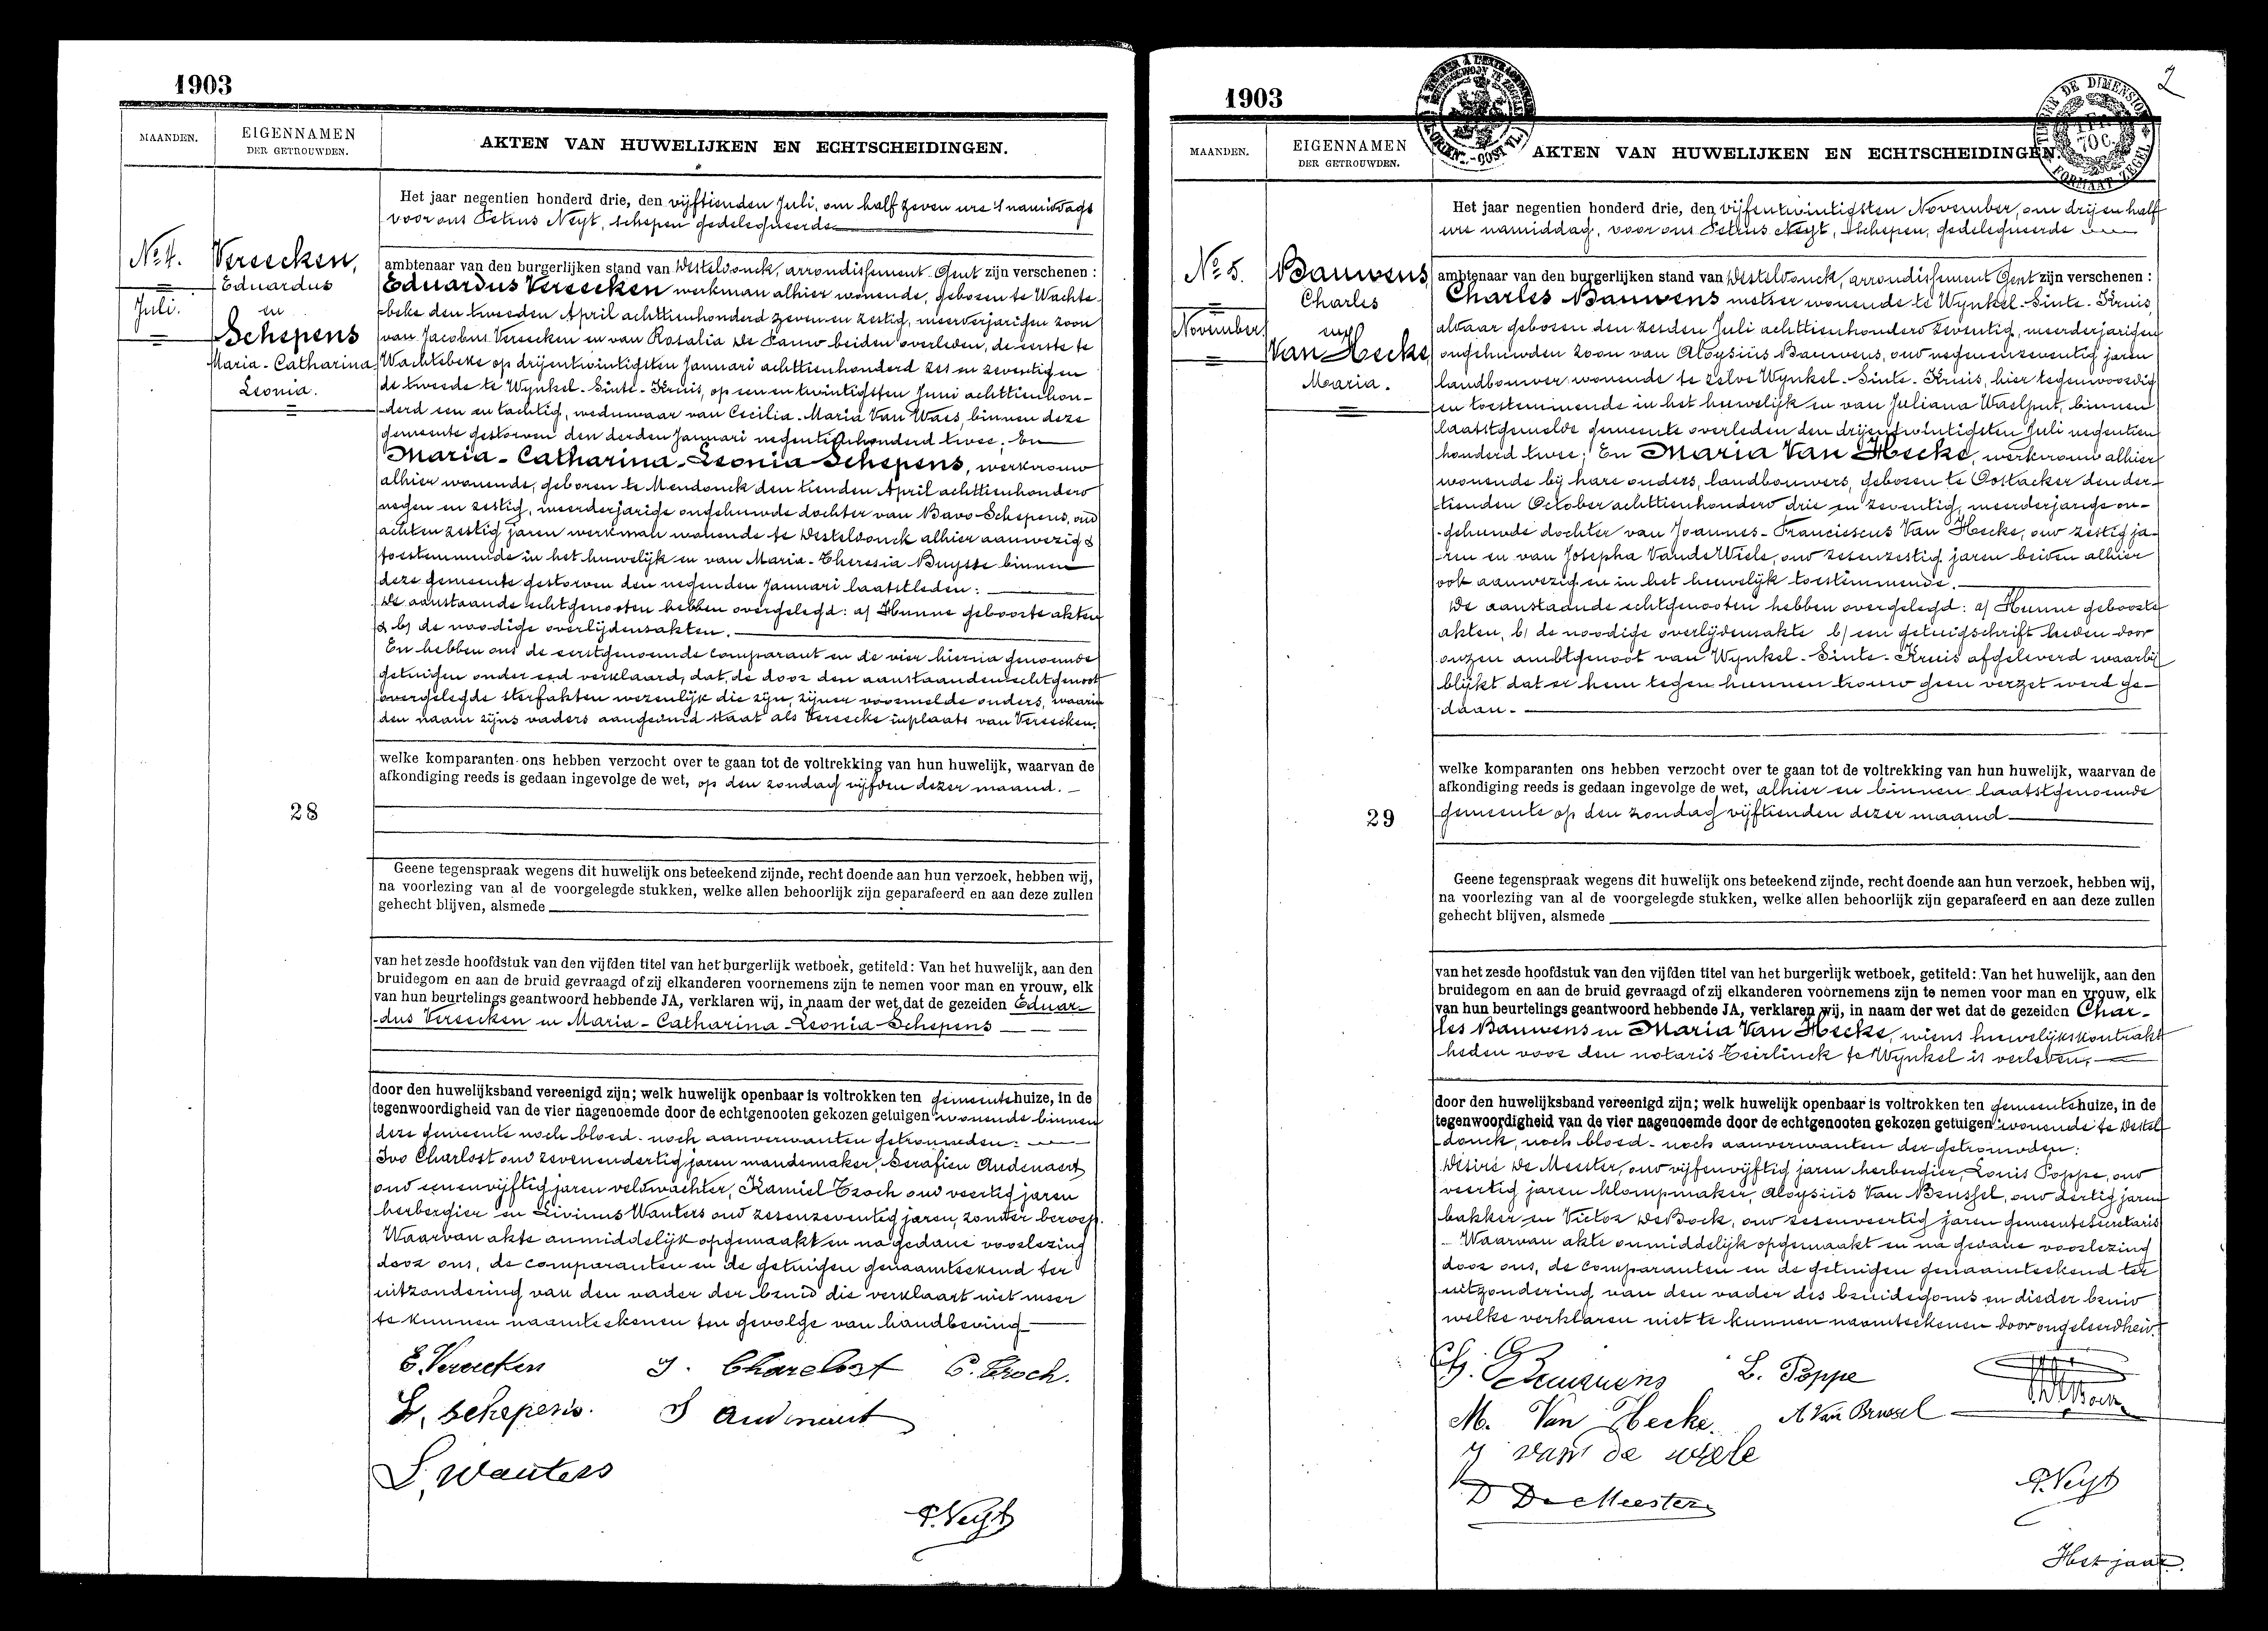 1903
MAANDEN.
EIGENNAMEN
DER GETROUWDEN.
AKTEN VAN HUWELIJKEN EN ECHTSCHEIDINGEN.
Het jaar negentien honderd drie, den vijftienden Juli, om half zeven ure 's namiddags
voor ons Petrus Neyt, schepen gedelegueerde
No 4.
Juli.
Vereecken,
Eduardus
en
Schepens
Maria-Catharina
Leonia.
ambtenaar van den burgerlijken stand van Desteldonck, arrondissement Gent zijn verschenen :
Eduardus Vereecken werkman alhier wonende, geboren te Wachte-
beke den tweeden April achttienhonderd zeven en zestig, meerderjarigen zoon
van Jacobus Vereecken en van Rosalia De Pauw beiden overleden, de eerste te
Wachtebeke op drijentwintigsten Januari achttienhonderd zes en zeventig en
de tweede te Wynkel-Sinte-Kruis, op een en twintigsten Juni achttienhon-
derd een en tachtig, weduwaar van Cecilia-Maria Van Waes, binnen deze
gemeente gestorven den derden Januari negentienhonderd twee; En
Maria-Catharina-Leonia Schepens, werkvrouw
alhier wonende, geboren te Mendonck den tienden April achttienhonderd
negen en zestig, meerderjarige ongehuwde dochter van Bavo Schepens, oud
achten zestig jaren werkman wonende te Desteldonck alhier aanwezig &
toestemmende in het huwelijk en van Maria-Theresia Buysse binnen
deze gemeente gestorven den negenden Januari laatstleden :
De aanstaande echtgenooten hebben overgelegd: a) Hunne geboorte akten
& b) de noodige overlijdensakten.
En hebben ons de eerstgenoemde comparant en de vier hierna genoemde
getuigen onder eed verklaard, dat de door den aanstaanden echtgenoot
overgelegde sterfakten wezenlijk die zijn, zijner voormelde ouders, waarin
den naam zijns vaders aangeduid staat als Vereecke inplaats van Vereecken.
welke komparanten ons hebben verzocht over te gaan tot de voltrekking van hun huwelijk, waarvan de
afkondiging reeds is gedaan ingevolge de wet, op den zondag vijfden dezer maand.
28
Geene tegenspraak wegens dit huwelijk ons beteekend zijnde, recht doende aan hun verzoek, hebben wij,
na voorlezing van al de voorgelegde stukken, welke allen behoorlijk zijn geparafeerd en aan deze zullen
gehecht blijven, alsmede
van het zesde hoofdstuk van den vijfden titel van het burgerlijk wetboek, getiteld: Van het huwelijk, aan den
bruidegom en aan de bruid gevraagd of zij elkanderen voornemens zijn te nemen voor man en vrouw, elk
van hun beurtelings geantwoord hebbende JA, verklaren wij, in naam der wet dat de gezeiden Eduar-
dus Vereecken en Maria-Catharina-Leonia Schepens
door den huwelijksband vereenigd zijn; welk huwelijk openbaar is voltrokken ten gemeentehuize, in de
tegenwoordigheid van de vier nagenoemde door de echtgenooten gekozen getuigen wonende binnen
deze gemeente noch bloed- noch aanverwanten getrouwden:
Ivo Charlost oud zevenendertig jaren mandemaker, Serafien Audenaert
oud eenenvijftig jaren veldwachter, Kamiel Troch oud veertig jaren
herbergier en Livinus Wauters oud zesenzeventig jaren, zonder beroep.
Waarvan akte onmiddelijk opgemaakt en na gedane voorlezing
door ons, de comparanten en de getuigen genaamteekend ter
uitzondering van den vader der bruid die verklaart niet meer
te kunnen naamteekenen ten gevolge van handbeving
E. Vereecken
J. Charelost
C. Troch.
L. Schepens.
S Audenaert
L. Wauters
P. Neyt
1903
2
MAANDEN.
EIGENNAMEN
DER GETROUWDEN.
AKTEN VAN HUWELIJKEN EN ECHTSCHEIDINGEN.
TIMBRE DE DIMENSION
1 Fr.
70 C.
FORMAAT ZEGEL
Het jaar negentien honderd drie, den vijfentwintigsten November, om drij en half
ure namiddag, voor ons Petrus Neyt, Schepen, gedelegueerde
No 5.
November
Bauwens
Charles
en
Van Hecke
Maria.
ambtenaar van den burgerlijken stand van Desteldonck, arrondissement Gent zijn verschenen :
Charles Bauwens metser wonende te Wynkel-Sinte-Kruis,
aldaar geboren den zesden Juli achttienhonderd zeventig, meerderjarigen
ongehuwden zoon van Aloysiüs Bauwens, oud negenenzeventig jaren
landbouwer wonende te zelve Wynkel-Sinte-Kruis, hier tegenwoordig
en toestemmende in het huwelijk en van Juliana Waelput, binnen
laatstgemelde gemeente overleden den drijentwintigsten Juli negentien
honderd twee; En Maria Van Hecke, werkvrouw alhier
wonende bij hare ouders, landbouwers, geboren te Oostacker den der-
tienden October achttienhonderd drie en zeventig, meerderjarige on-
gehuwde dochter van Joannes-Franciscus Van Hecke, oud zestig ja-
ren en van Josepha Van de Wiele, oud zesenzestig jaren beiden alhier
ook aanwezig en in het huwelijk toestemmende.
De aanstaande echtgenooten hebben overgelegd: a) Hunne geboorte
akten, b) de noodige overlijdensakte b) een getuigschrift heden door
onzen ambtgenoot van Wynkel-Sinte-Kruis afgeleverd waarbij
blijkt dat er hem tegen hunnen trouw geen verzet werd ge-
daan.
welke komparanten ons hebben verzocht over te gaan tot de voltrekking van hun huwelijk, waarvan de
afkondiging reeds is gedaan ingevolge de wet, alhier en binnen laatstgenoemde
gemeente op den zondag vijftienden dezer maand
29
Geene tegenspraak wegens dit huwelijk ons beteekend zijnde, recht doende aan hun verzoek, hebben wij,
na voorlezing van al de voorgelegde stukken, welke allen behoorlijk zijn geparafeerd en aan deze zullen
gehecht blijven, alsmede
van het zesde hoofdstuk van den vijfden titel van het burgerlijk wetboek, getiteld: Van het huwelijk, aan den
bruidegom en aan de bruid gevraagd of zij elkanderen voornemens zijn te nemen voor man en vrouw, elk
van hun beurtelings geantwoord hebbende JA, verklaren wij, in naam der wet dat de gezeiden Char-
les Bauwens en Maria Van Hecke, wiens huwelijkskontrakt
heden voor den notaris Teirlinck te Wynkel is verleden.
door den huwelijksband vereenigd zijn; welk huwelijk openbaar is voltrokken ten gemeentehuize, in de
tegenwoordigheid van de vier nagenoemde door de echtgenooten gekozen getuigen wonende te Destel-
donck, noch bloed- noch aanverwanten der getrouwden:
Désiré De Meester, oud vijfenvijftig jaren herbergier, Louis Poppe, oud
veertig jaren klompmaker, Aloysiüs Van Brussel, oud dertig jaren
bakker en Victor De Bock, oud zesenveertig jaren gemeentesecretaris
Waarvan akte onmiddelijk opgemaakt en na gedane voorlezing
door ons, de comparanten en de getuigen genaamteekend ter
uitzondering van den vader des bruidegoms en die der bruid
welke verklaren niet te kunnen naamteekenen door ongeleerdheid.
Ch. Bauwens
L. Poppe
M. Van Hecke.
A Van Brussel
J van de wiele
D De Meester
P. Neyt
Het jaar